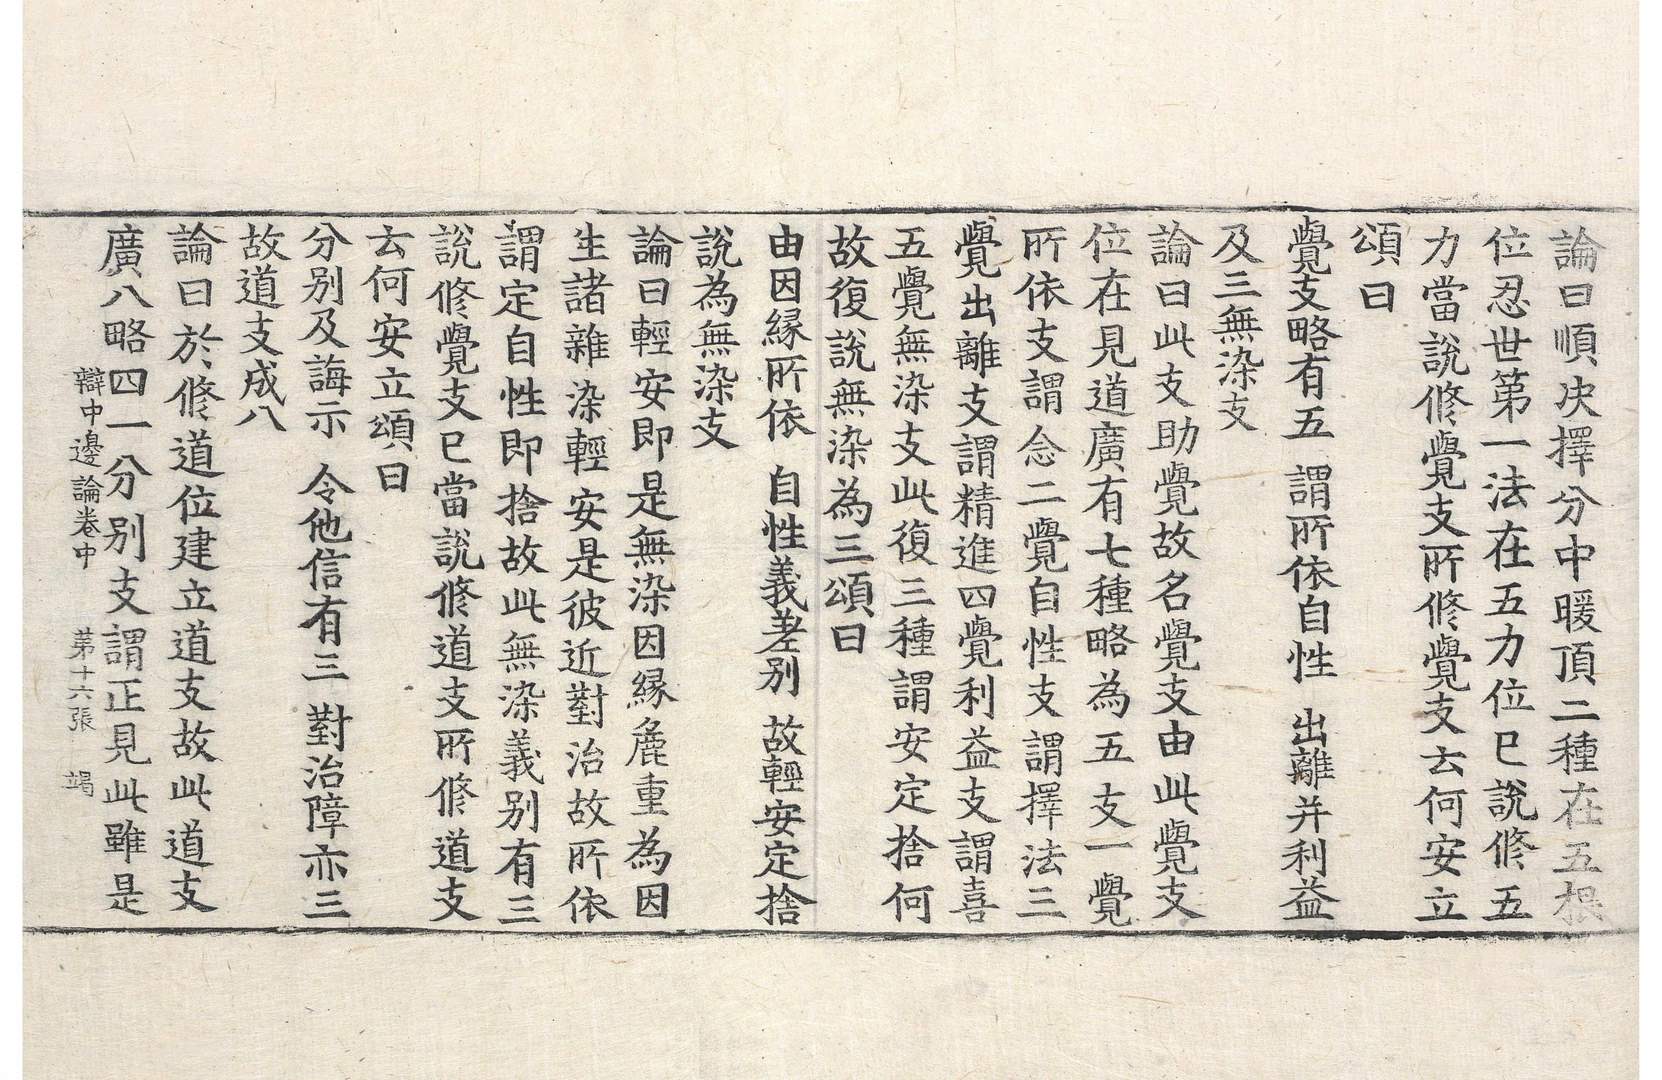 論曰順决擇分中暖頂二種在五根
位忍世第一法在五力位已說修五
力當說修覺支所修覺支云何安立
頌曰
覺支略有五　謂所依自性　出離并利益
及三無染支
論曰此支助覺故名覺支由此覺支
位在見道廣有七種略為五支一覺
所依支謂念二覺自性支謂擇法三
覺出離支謂精進四覺利益支謂喜
五覺無染支此復三種謂安定捨何
故復說無染為三頌曰
由因緣所依　自性義差別　故輕安定捨
說為無染支
論曰輕安即是無染因緣麁重為因
生諸雜染輕安是彼近對治故所依
謂定自性即捨故此無染義別有三
說修覺支已當說修道支所修道支
云何安立頌曰
分別及誨示　令他信有三　對治障亦三
故道支成八
論曰於修道位建立道支故此道支
廣八略四一分別支謂正見此雖是
辯中邊論卷中　第十六張　竭